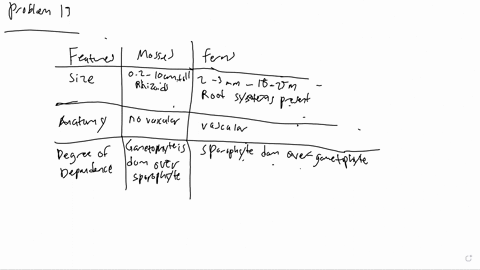 Problem 17
Features Mosses Ferns
Size 0.2-10cm tall 2-3mm - 10-25m
Rhizoids Root systems present
Anatomy no vascular vascular
Degree of Gametophyte is Sporophyte dom over gametophyte
Dependence dom over
sporophyte